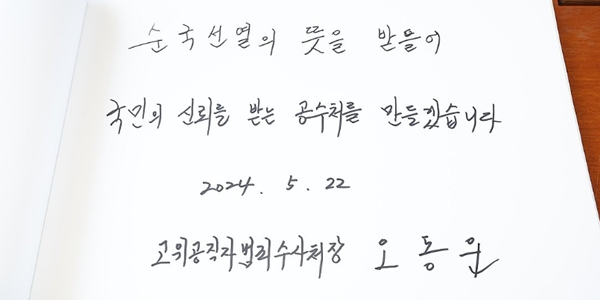 순국선열의 뜻을 받들어
국민의 신뢰를 받는 공수처를 만들겠습니다
2024. 5. 22
고위공직자범죄수사처장 오동운